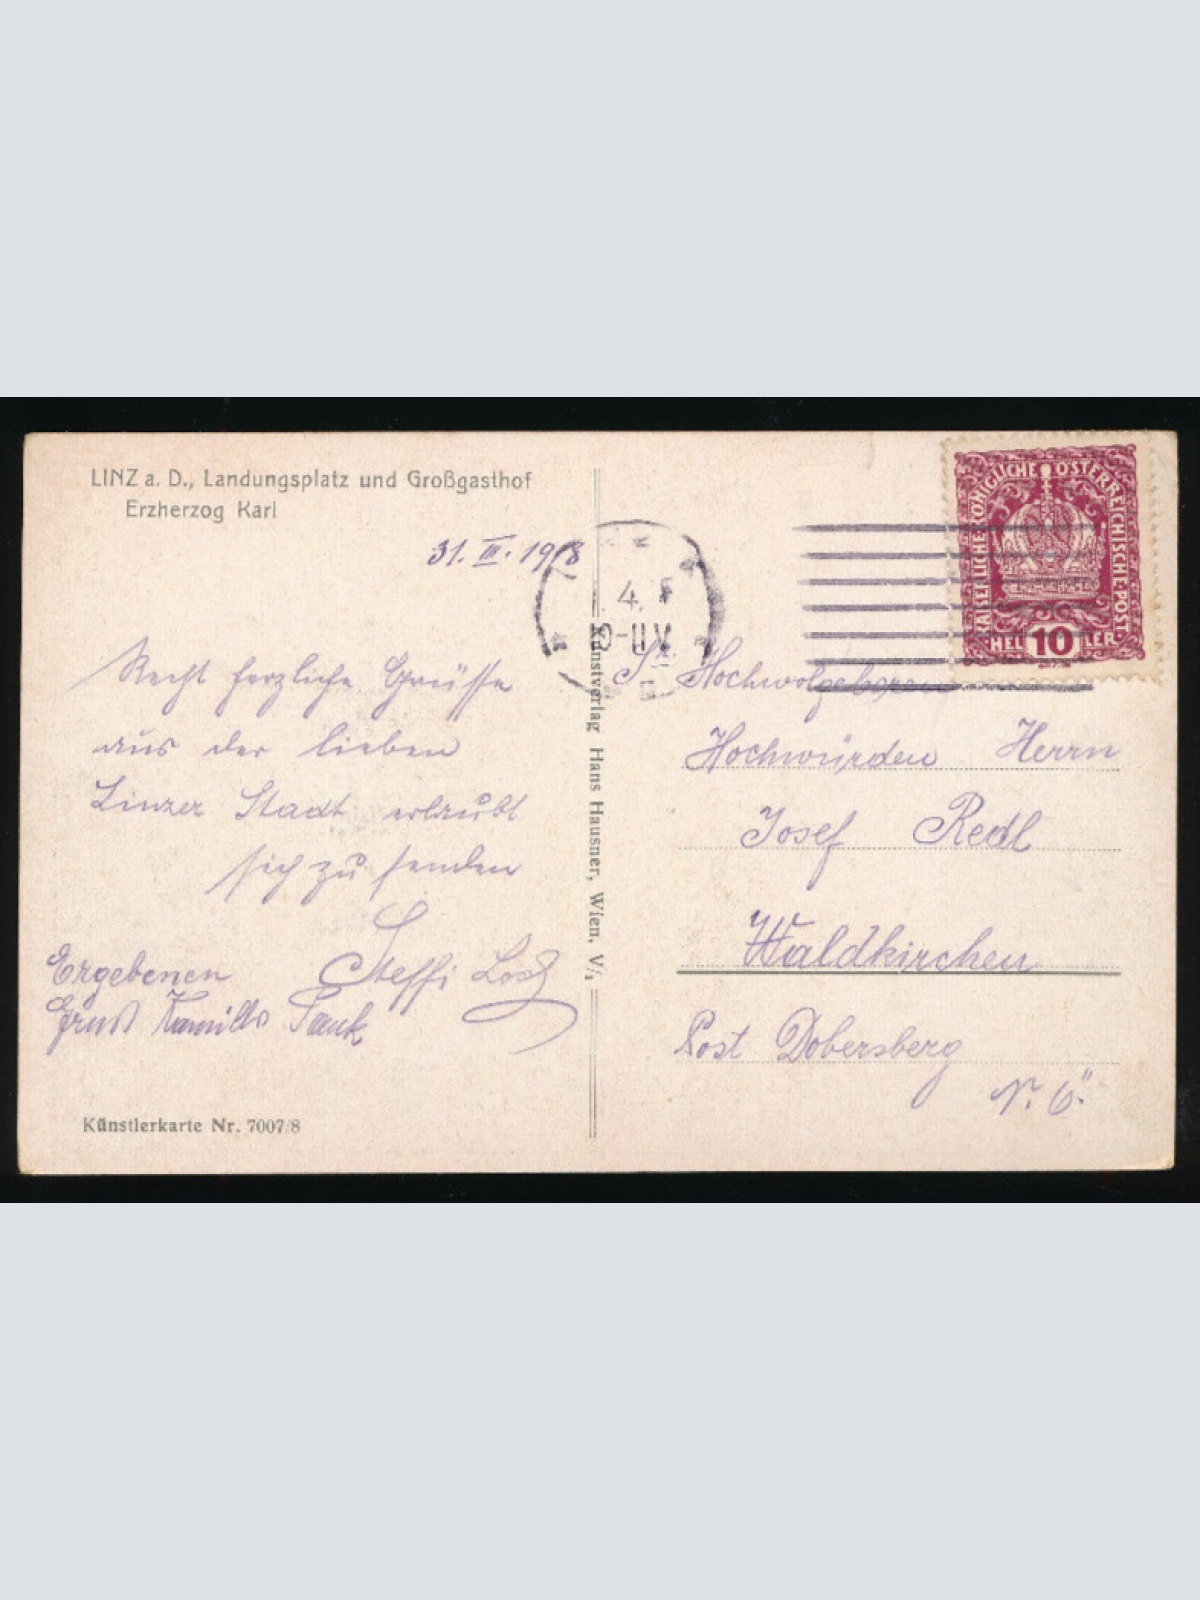 LINZ a. D., Landungsplatz und Großgasthof
Erzherzog Karl
31. III. 1918
Recht herzliche Grüsse
aus der lieben
Linzer Stadt erlaubt
sich zu senden
Steffi
Ergebenen
Ernst Kamillo
Künstlerkarte Nr. 7007/8
Kunstverlag Hans Hausner, Wien, V/1
KAISERLICHE KÖNIGLICHE ÖSTERREICHISCHE POST
HELLER
10
Sr. Hochwolgeboren
Hochwürden Herrn
Josef Redl
Waldkirchen
Post Dobersberg
N. 6"